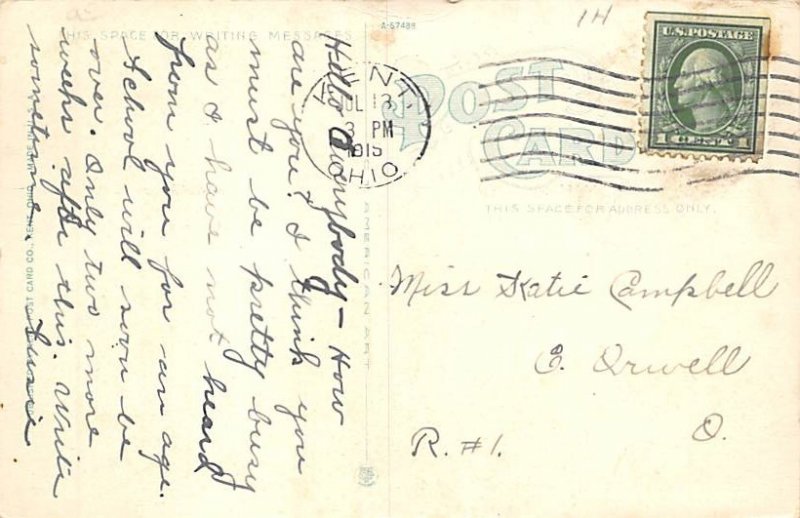 THIS SPACE FOR WRITING MESSAGES
A-67488
1H
U.S. POSTAGE
1 CENT 1
KENT,
JUL 13
3 PM
1915
OHIO
POST
CARD
THIS SPACE FOR ADDRESS ONLY.
Hello Everybody - How
are you? I think you
must be pretty busy
as I have not heard
from you for an age.
School will soon be
over. Only two more
weeks after this. Write
sometime.
Susie
AMERICAN ART
Miss Katie Campbell
E. Orwell
O.
R. #1.
POST CARD CO.,